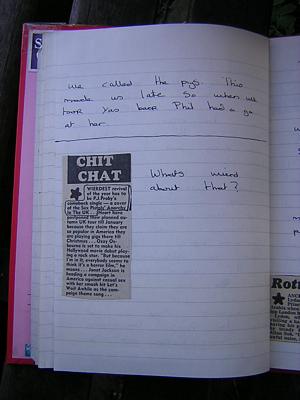 we called the pigs. This
made us late so when we
took Yas back Phil had a go
at her.
CHIT
CHAT
WEIRDEST revival
of the year has to
be P.J. Proby's
comeback single — a cover
of the Sex Pistols' Anarchy
In The UK . . . Heart have
their planned au-
tumn UK tour till January
because they claim they are
so popular in America they
are playing gigs there till
Christmas . . . Ozzy Os-
bourne is set to make his
Hollywood movie debut play-
ing a rock star. "But because
I'm in it, everybody seems to
think it's a horror film," he
means . . . Janet Jackson is
heading a campaign in
America against casual sex
with her smash hit Let's
Wait Awhile as the cam-
paign theme song . . .
Whats weird
about that?
Rott